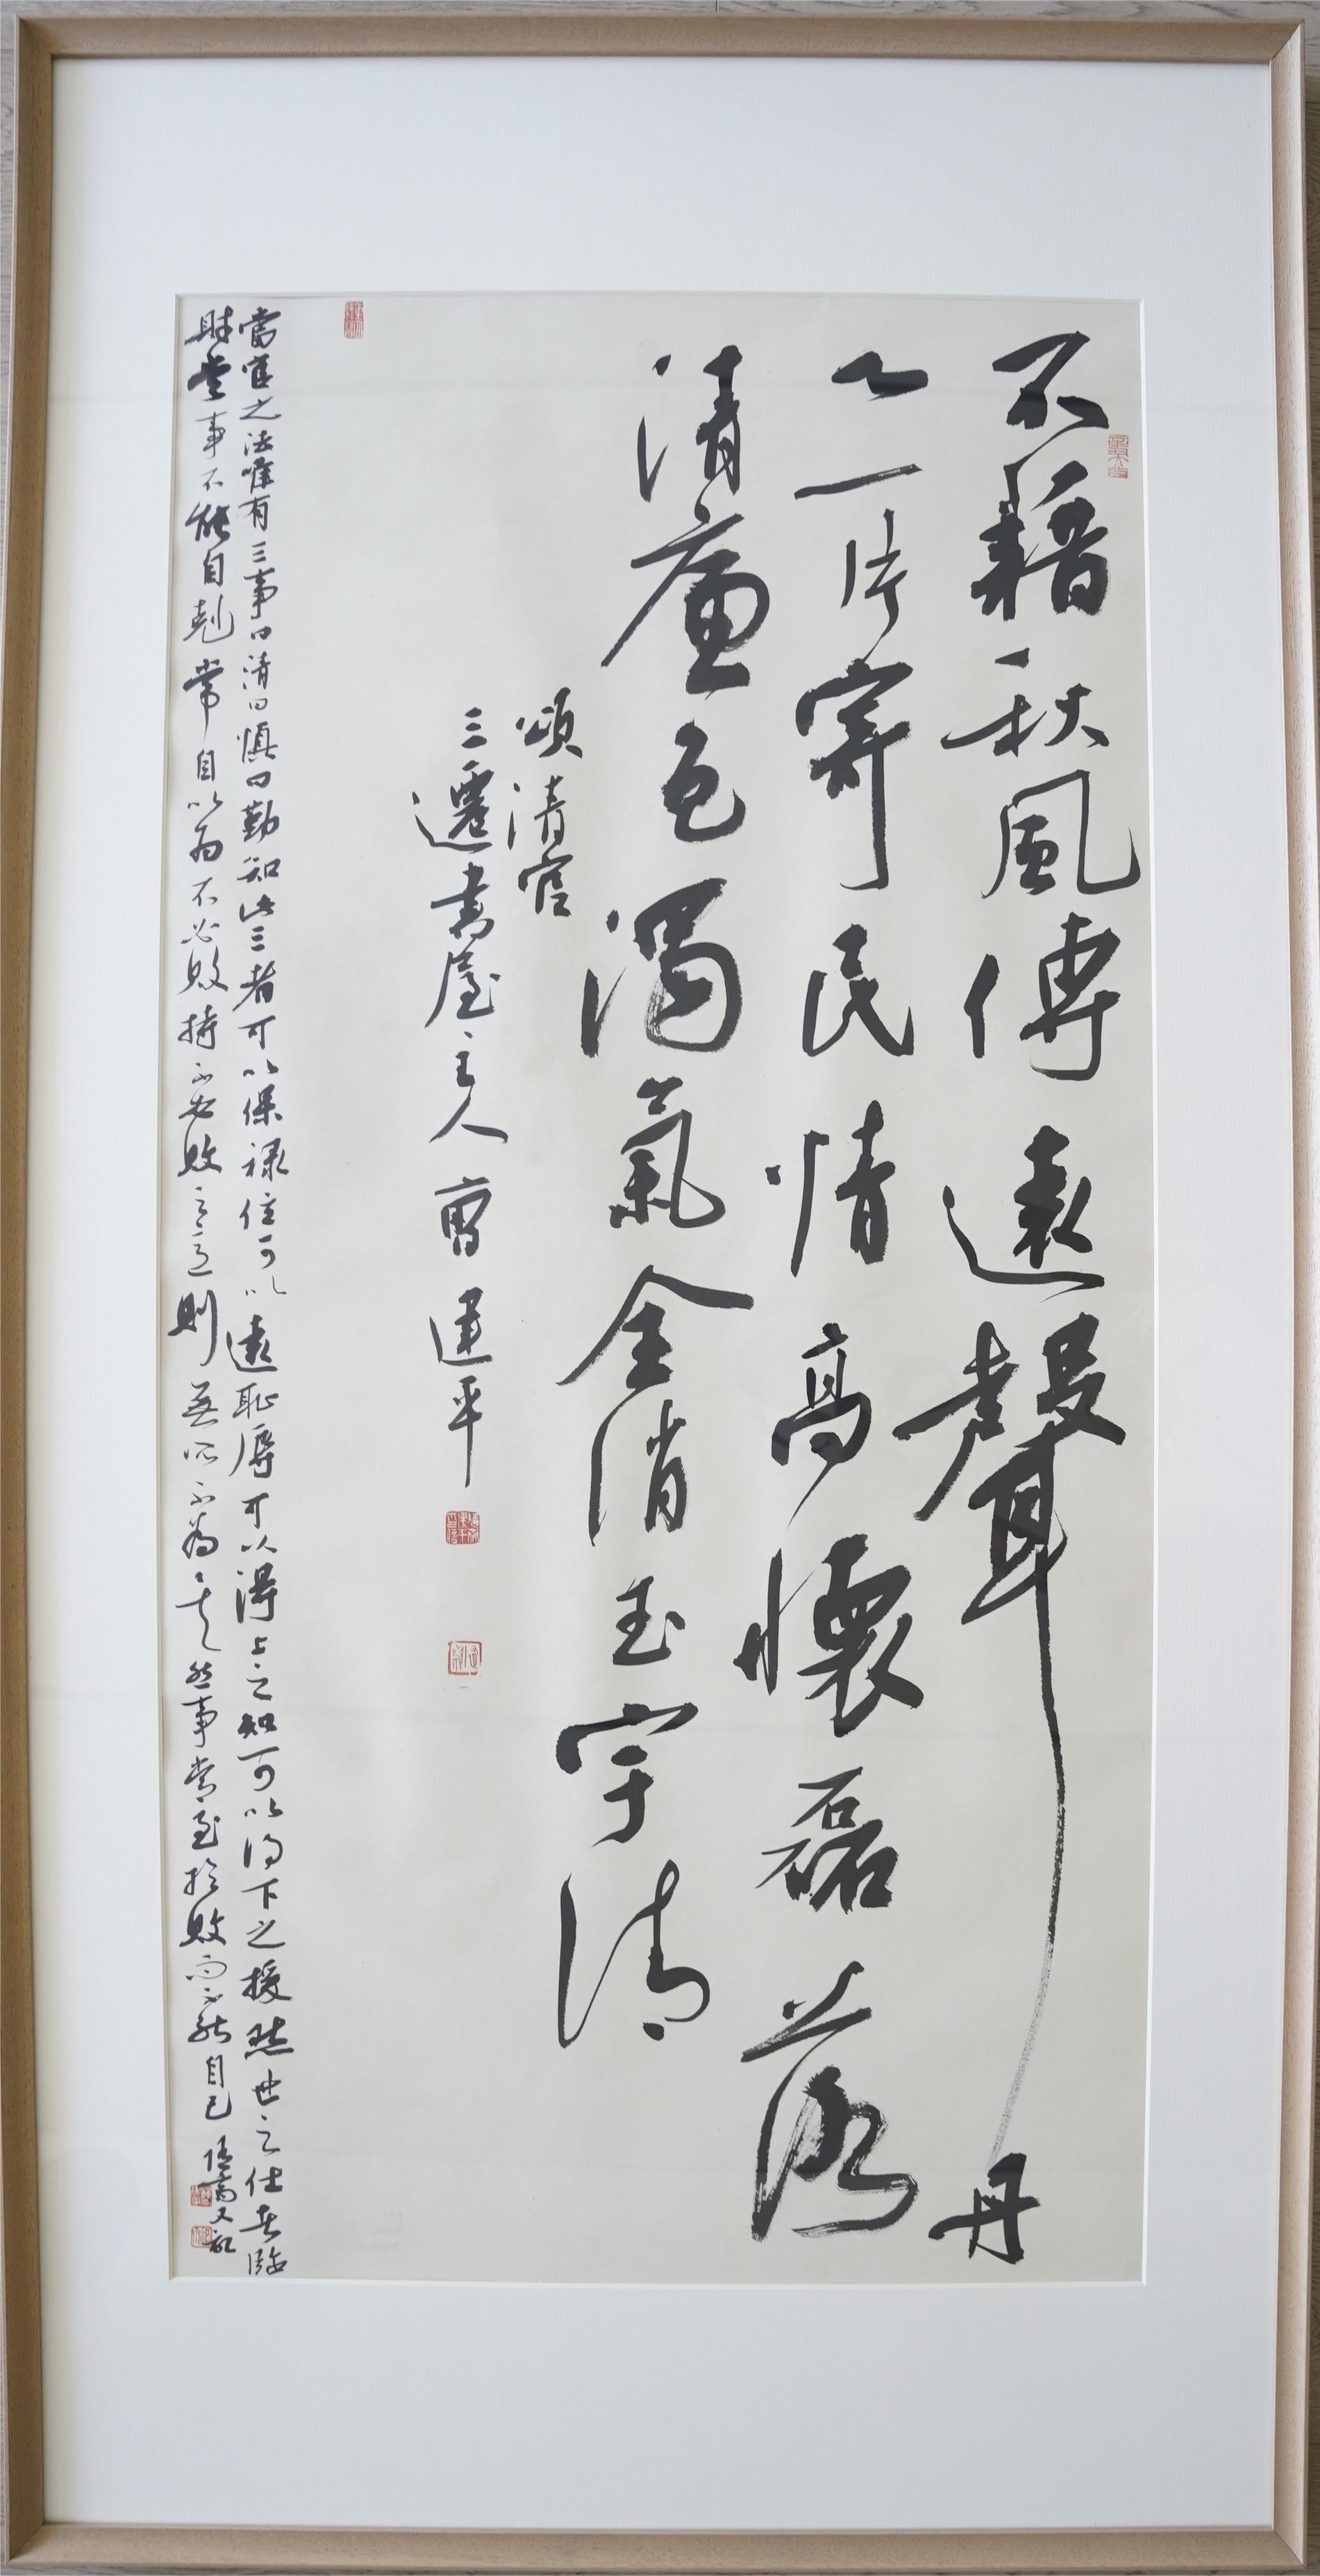 不藉秋風傳遠聲丹
心一片寄民情高懷磊落
清廉包濁氣全消玉宇清
頌清官
三遷書屋主人曹建平
當官之法唯有三事曰清曰慎曰勤知此三者可以保祿位可以遠恥辱可以得上之知可以得下之援然世之仕者臨
財當事不能自剋常自以為不必敗持不必敗之意則無所不為矣然事常至於敗而不能自已 又記